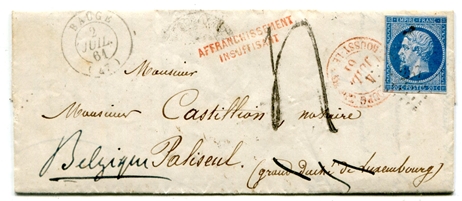 2
JUIL.
61
AFFRANCHISSEMENT
INSUFFISANT
EMPIRE FRANC.
20 C. POSTES 20 C.
Monsieur
Monsieur Castillion, notaire
Belgique Paliseul (grand duché de Luxembourg)